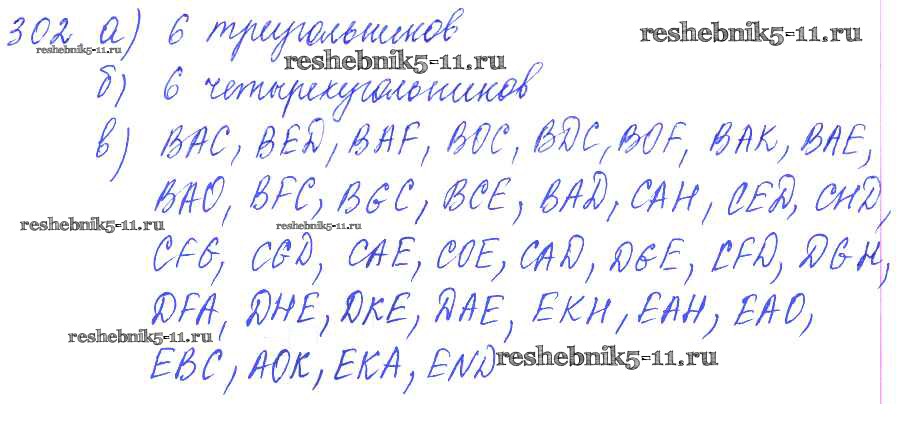 302 а) 6 треугольников
б) 6 четырехугольников
в) BAC, BED, BAF, BOC, BDC, BOF, BAK, BAE,
BAO, BFC, BGC, BCE, BAD, CAH, CED, CHD,
CFG, CGD, CAE, COE, CAD, DGE, CFD, DGH,
DFA, DHE, DKE, DAE, EKH, EAH, EAO,
EBC, AOK, EKA, END
reshebnik5-11.ru
reshebnik5-11.ru
reshebnik5-11.ru
reshebnik5-11.ru
reshebnik5-11.ru
reshebnik5-11.ru
reshebnik5-11.ru